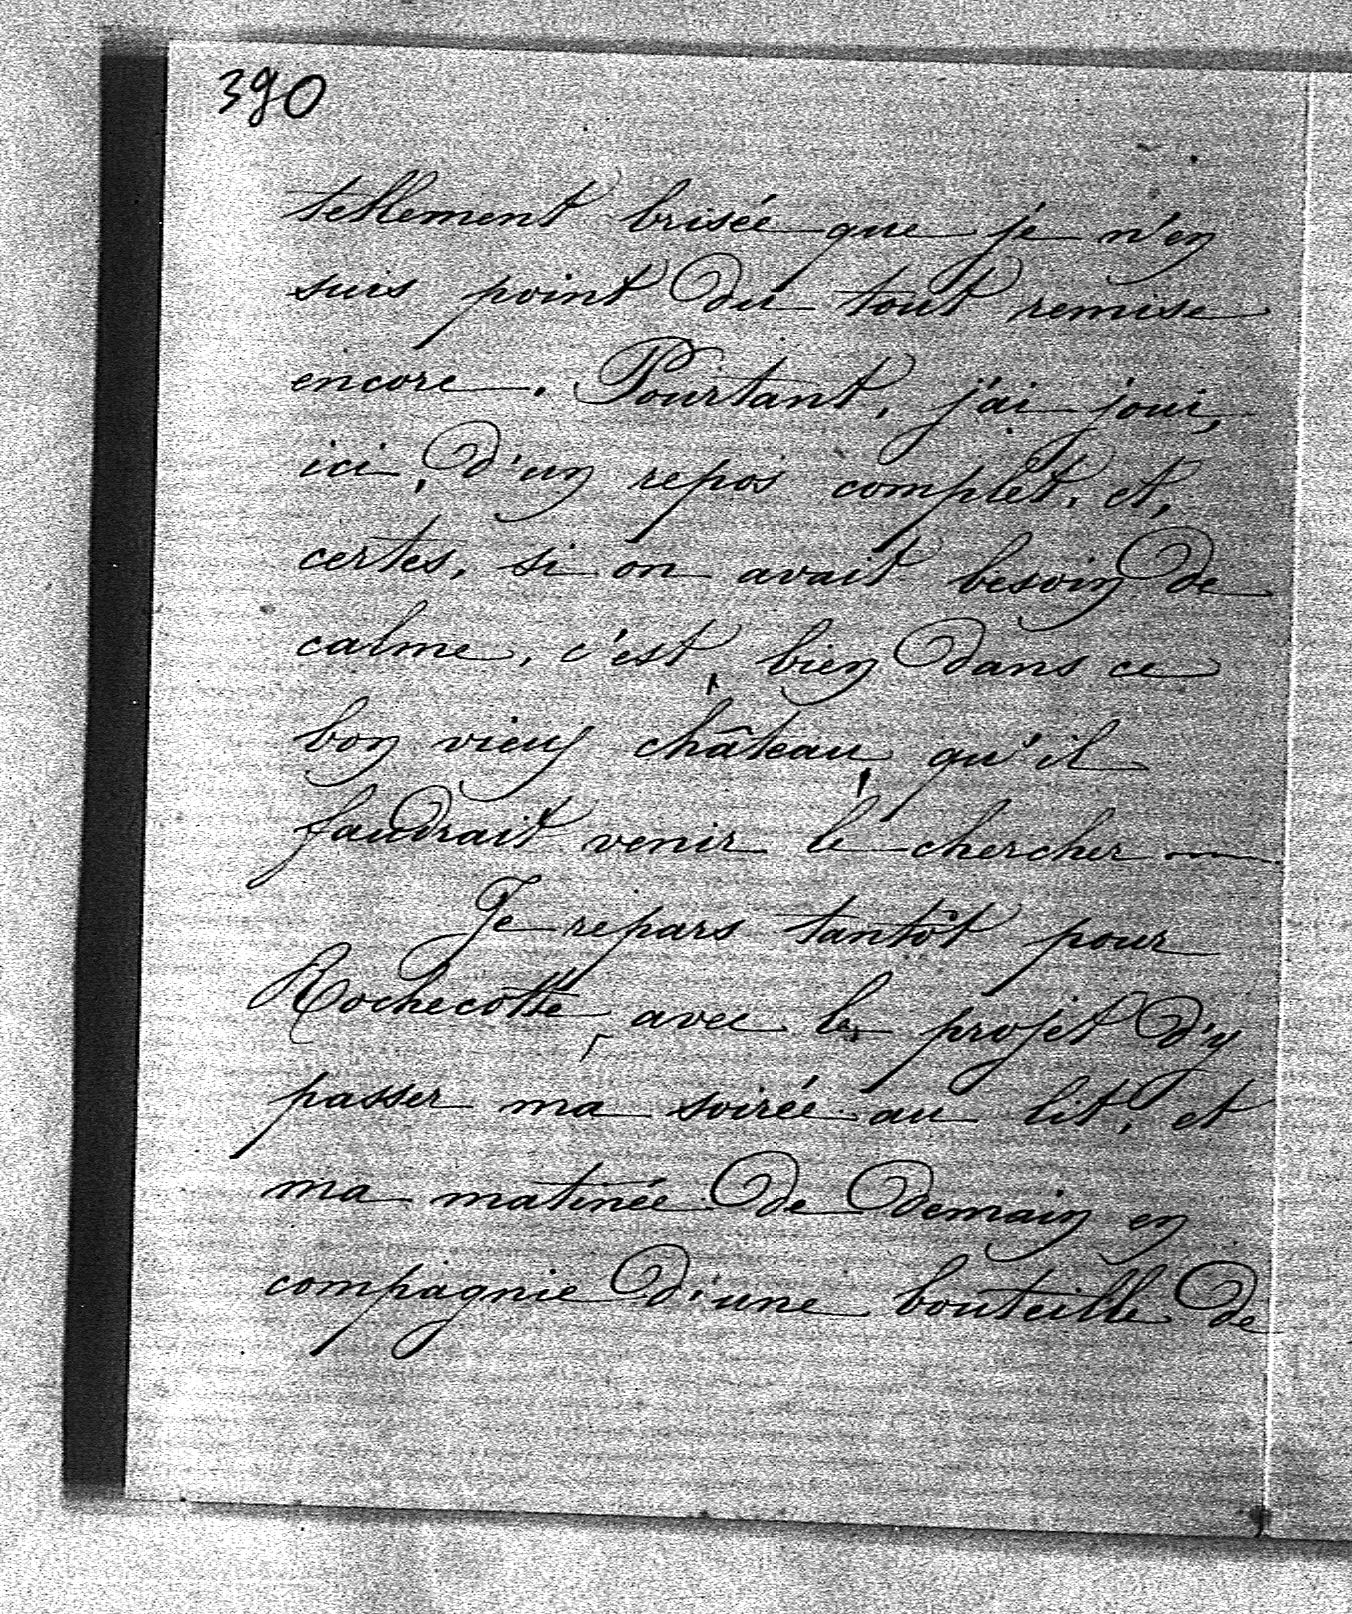 390
tellement brisée que je n'en
suis point du tout remise
encore. Pourtant, j'ai joui,
ici, d'un repos complet, et,
certes, si on avait besoin de
calme, c'est, bien dans ce
bon vieux château, qu'il
faudrait venir le chercher —
Je repars tantôt pour
Rochecotte, avec le projet d'y
passer ma soirée au lit, et
ma matinée de demain en
compagnie d'une bouteille de